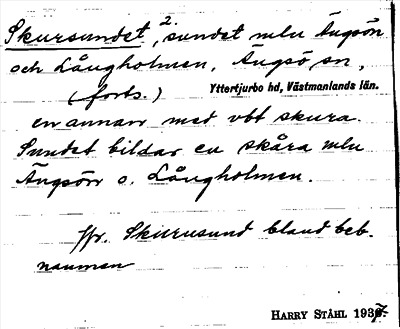 Skursundet 2., sundet mlu Ängsön
och Långholmen, Ängsö sn,
(forts.) Yttertjurbo hd, Västmanlands län.
en annan med vbt skura.
Sundet bildar en skåra mlu
Ängsön o. Långholmen.
Jfr. Skurusund bland beb.
namnen
HARRY STÅHL 1937.